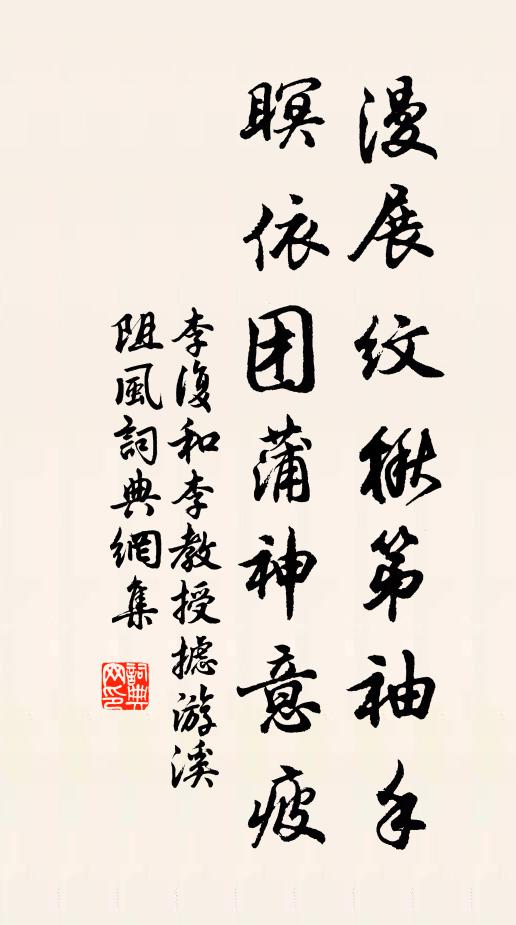 漫展纹楸第袖手
瞑依团蒲神意疲
李復和李教授摅游溪
阻風詞典網集
詞典网印